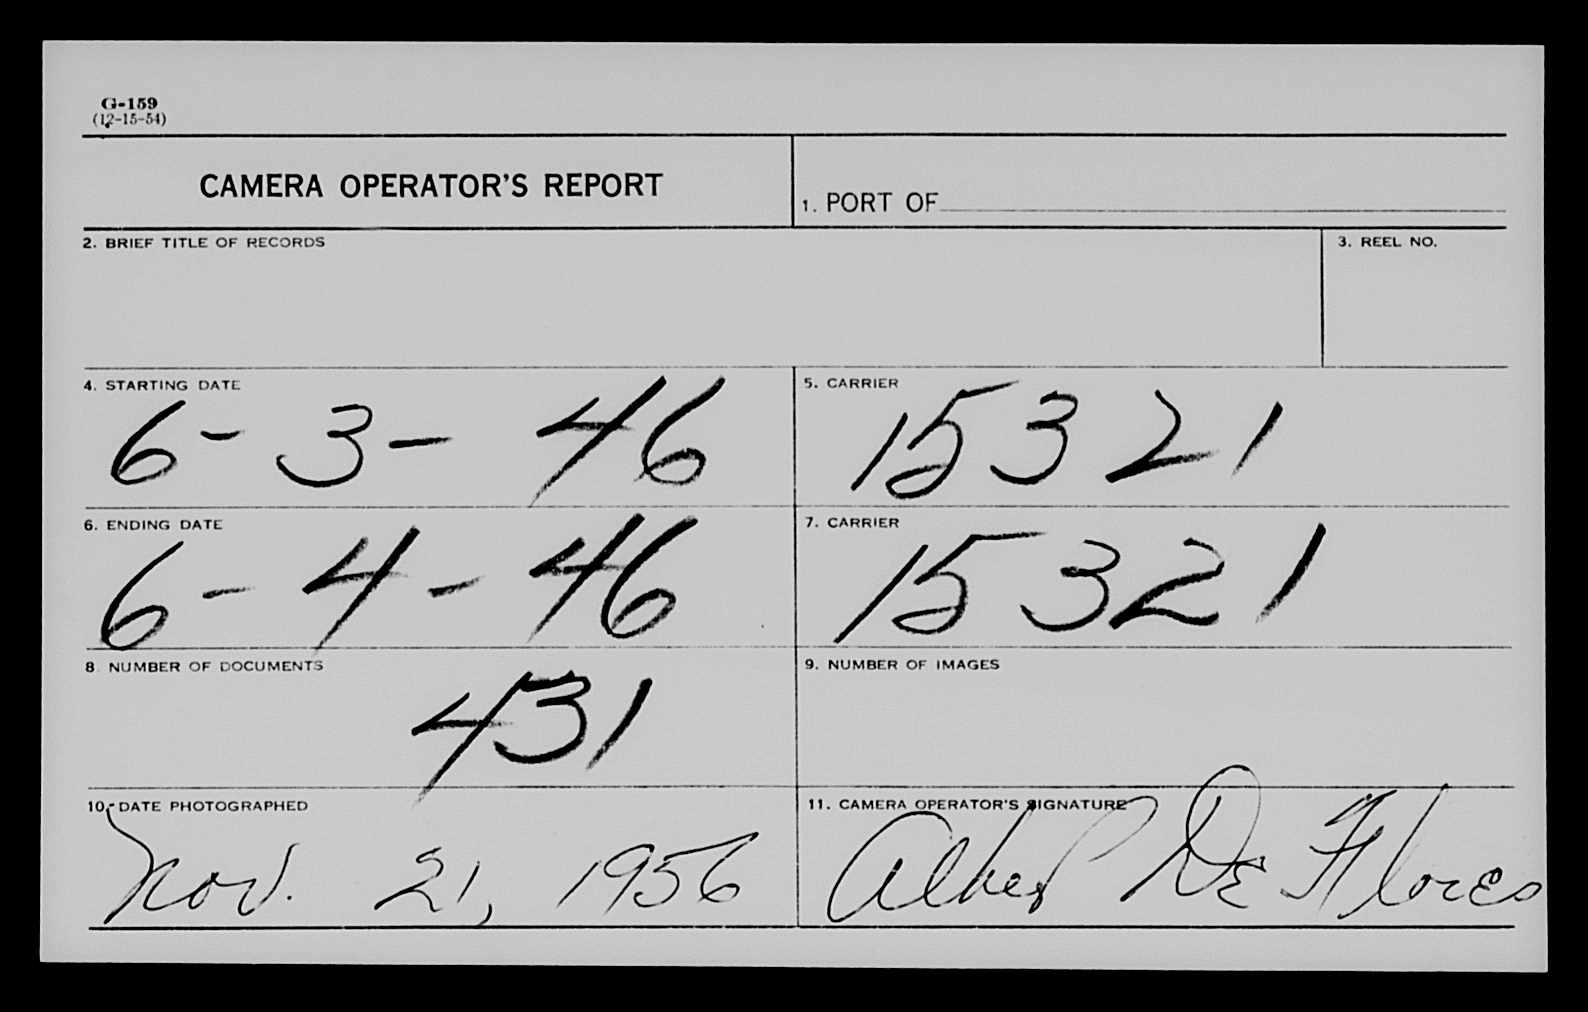 G-159
(12-15-54)
CAMERA OPERATOR'S REPORT
1. PORT OF
2. BRIEF TITLE OF RECORDS
3. REEL NO.
4. STARTING DATE
6-3-46
5. CARRIER
15321
6. ENDING DATE
6-4-46
7. CARRIER
15321
8. NUMBER OF DOCUMENTS
431
9. NUMBER OF IMAGES
10. DATE PHOTOGRAPHED
Nov. 21, 1956
11. CAMERA OPERATOR'S SIGNATURE
Albert De Flores